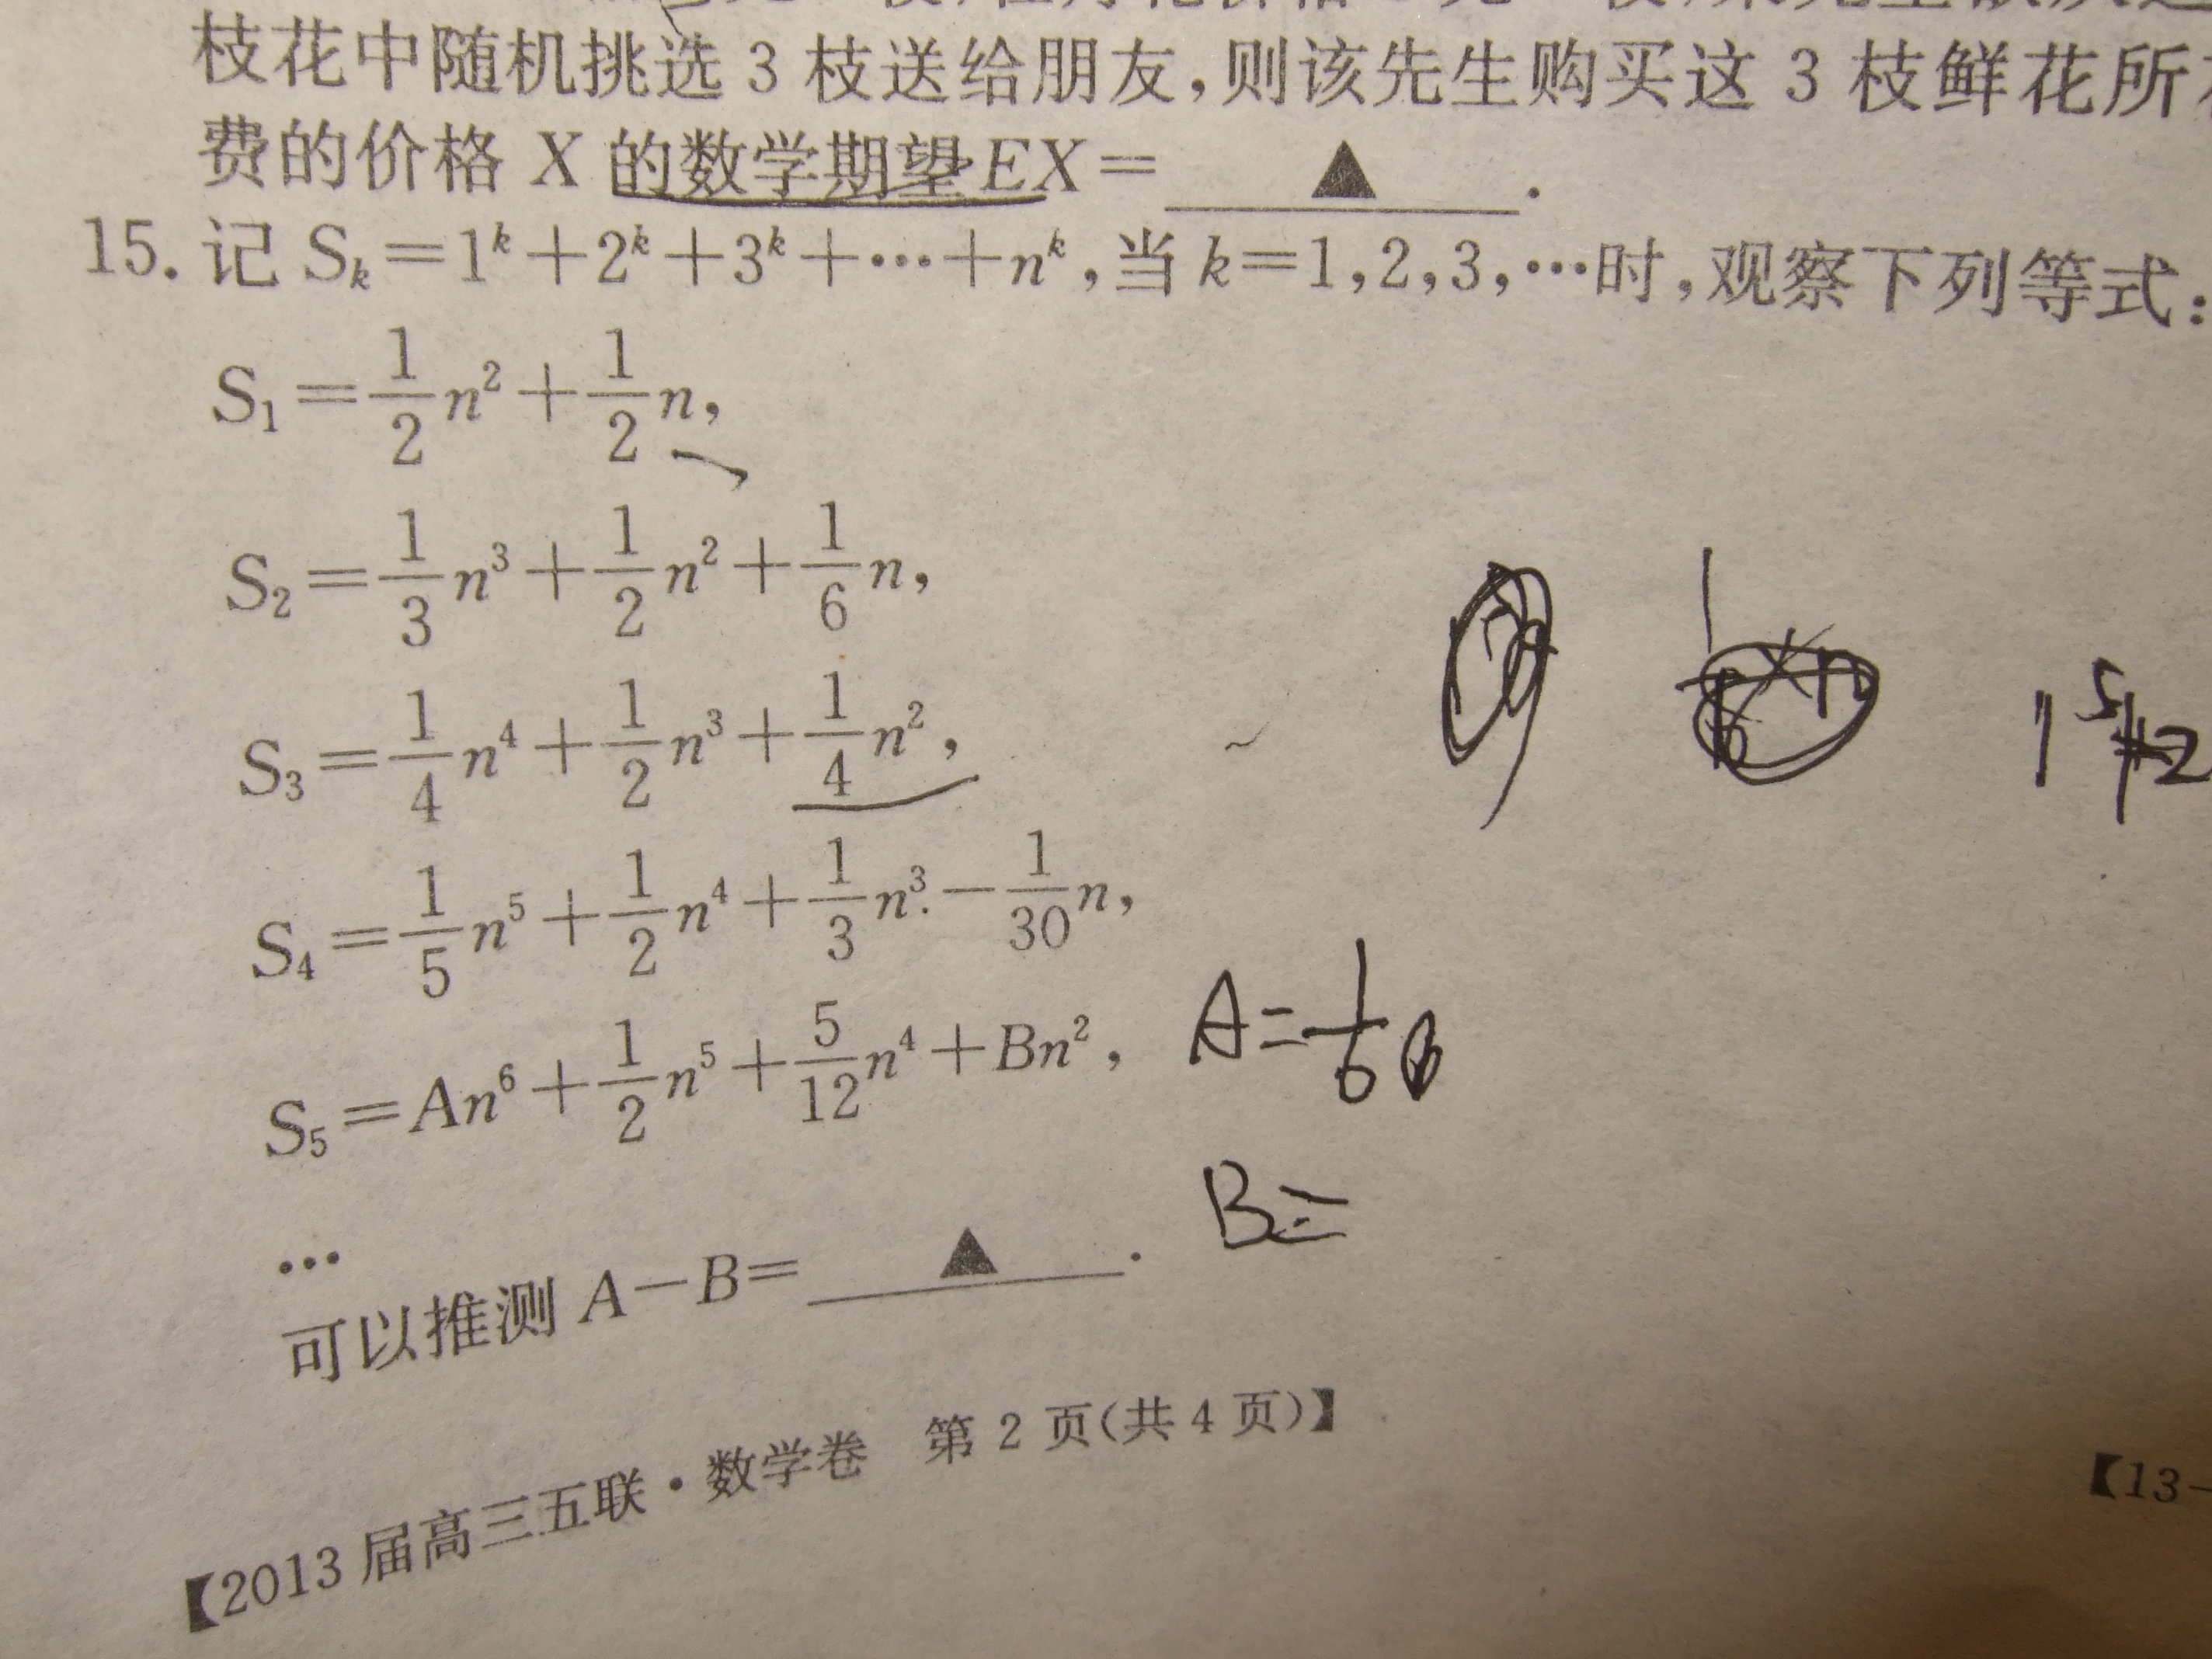 枝花中随机挑选 3 枝送给朋友,则该先生购买这 3 枝鲜花所
费的价格 X 的数学期望 EX= ▲ .
15. 记 Sₖ=1ᵏ+2ᵏ+3ᵏ+⋯+nᵏ,当 k=1,2,3,⋯时,观察下列等式:
S₁=1/2 n²+1/2 n,
S₂=1/3 n³+1/2 n²+1/6 n,
S₃=1/4 n⁴+1/2 n³+1/4 n²,
S₄=1/5 n⁵+1/2 n⁴+1/3 n³-1/30 n,
S₅=An⁶+1/2 n⁵+5/12 n⁴+Bn²,
A=1/6
B=
⋯
可以推测 A-B= ▲ .
【2013 届高三五联·数学卷 第 2 页(共 4 页)】
【13-